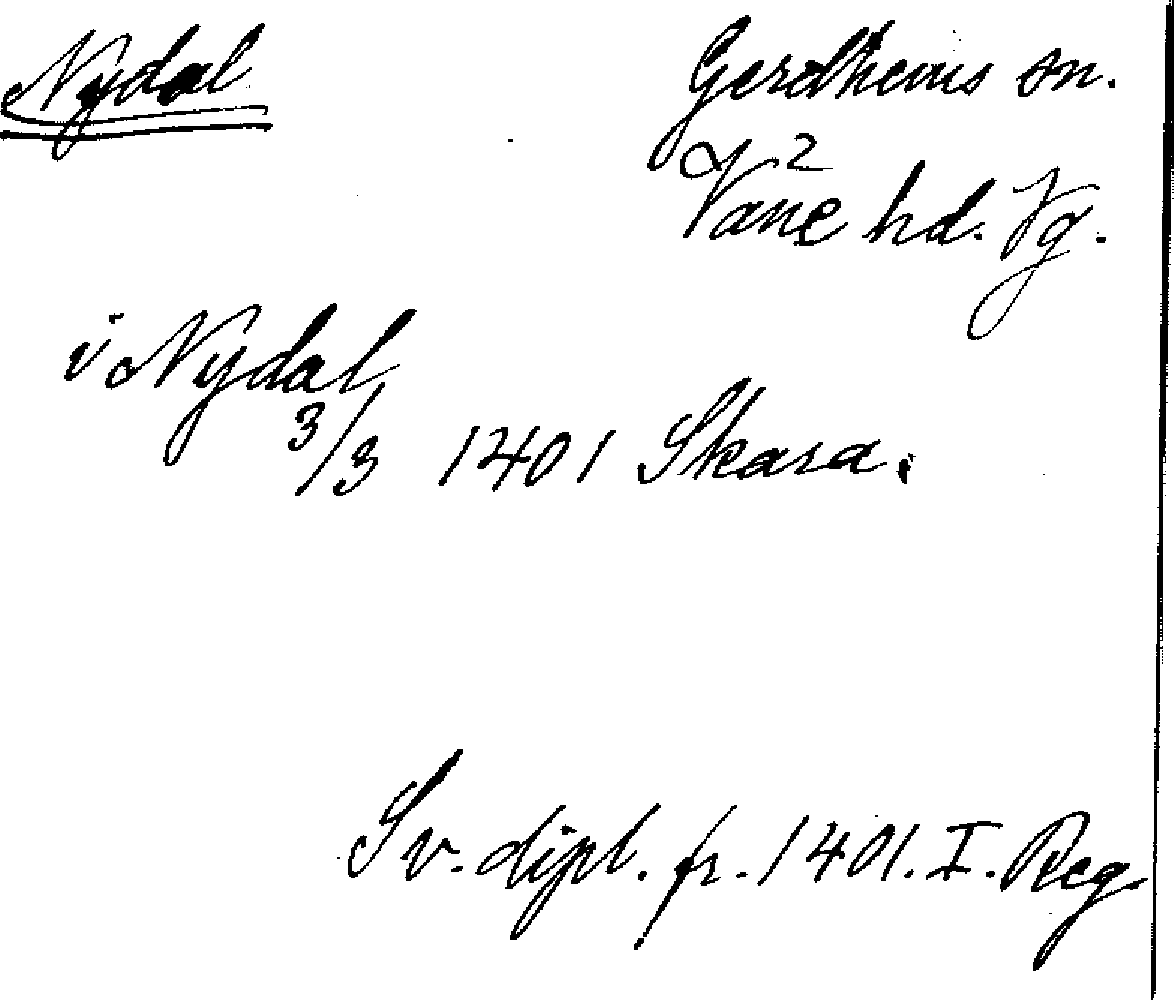 Nydal
Gerdhems sn.
Väne hd. Vg.
i Nydal
3/3 1401 Skara.
Sv. dipl. fr. 1401. I. Reg.